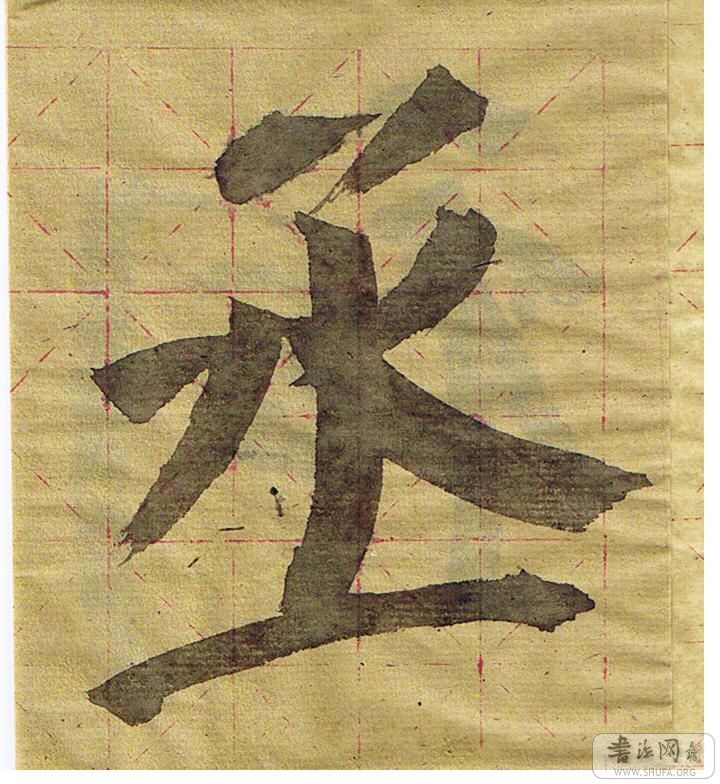 丞
书法网
WWW.SHUFA.ORG